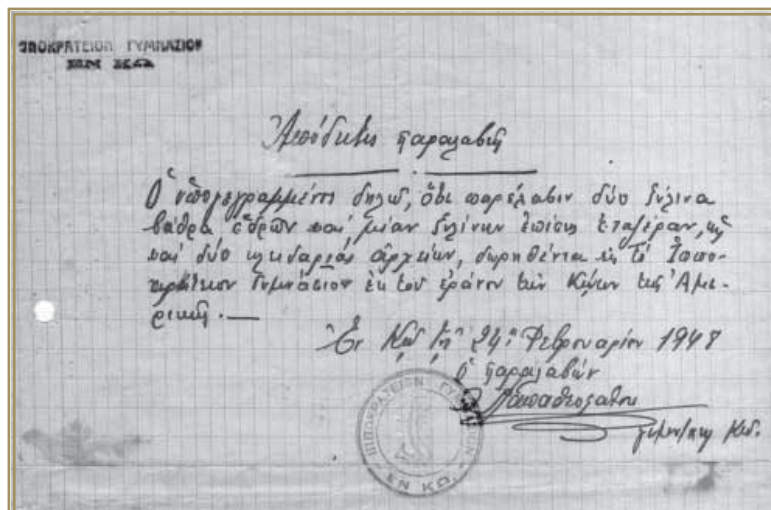 ΙΠΠΟΚΡΑΤΕΙΟΝ ΓΥΜΝΑΣΙΟΝ
ΕΝ ΚΩ
Ἀπόδειξις παραλαβῆς
Ὁ ὑπογεγραμμένος δηλῶ, ὅτι παρέλαβον δύο ξύλινα
βάθρα ἑδρῶν καὶ μίαν ξυλίνην ἐπίσης ἑταζέραν,
καὶ δύο κλειδαριάς ἀρχείων, δωρηθέντα εἰς τὸ Ἱππο-
κράτειον Γυμνάσιον ἐκ τοῦ ἐράνου τῶν Κώων τῆς Ἀμε-
ρικῆς.—
Ἐν Κῷ τῇ 24ῃ Φεβρουαρίου 1948
ὁ παραλαβών
Κῶ.
ΙΠΠΟΚΡΑΤΕΙΟΝ ΓΥΜΝΑΣΙΟΝ
ΕΝ ΚΩ